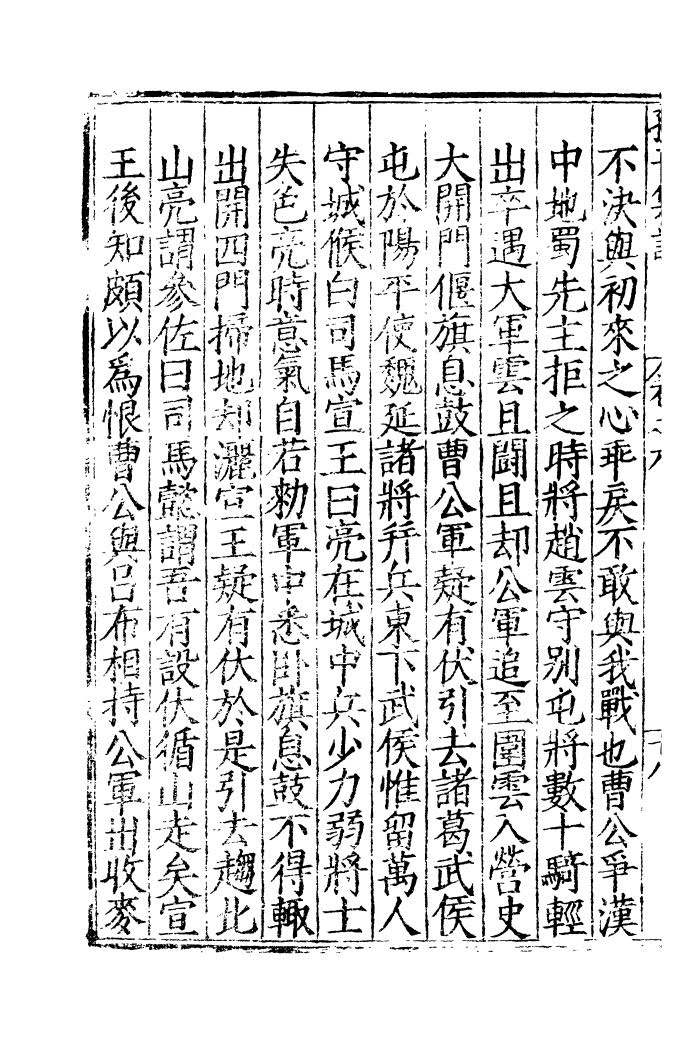 不決與初來之心乖戾不敢與我戰也曹公爭漢
中地蜀先主拒之時將趙雲守别屯將數十騎輕
出卒遇大軍雲且鬬且却公軍追至圍雲入營史
大開門偃旗息鼓曹公軍疑有伏引去諸葛武侯
屯於陽平使魏延諸將并兵東下武侯惟留萬人
守城候白司馬宣王曰亮在城中兵少力弱將士
失色亮時意氣自若勑軍中悉卧旗息鼓不得輙
出開四門掃地却灑宣王疑有伏於是引去趨北
山亮謂參佐曰司馬懿謂吾有設伏循山走矣宣
王後知頗以爲恨曹公與吕布相持公軍出收麥